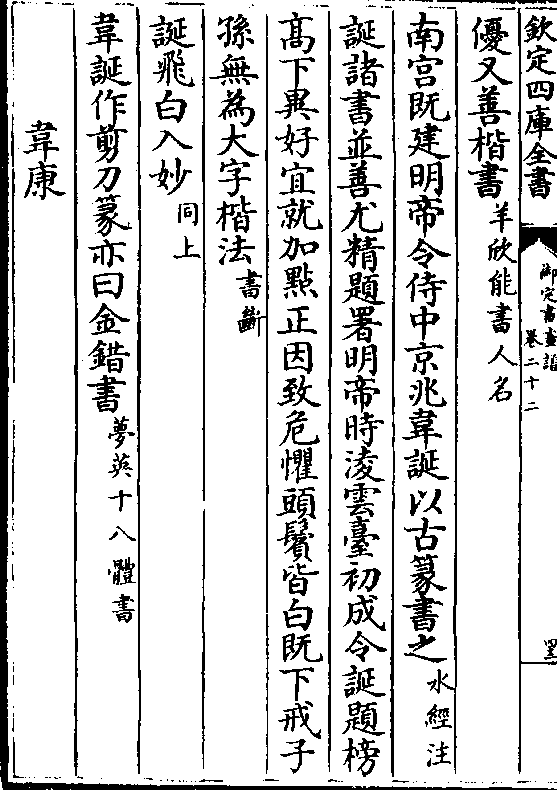 欽定四庫全書
御定書畫譜
卷二十二
優又善楷書羊欣能書人名
南宫既建明帝令侍中京兆韋誕以古篆書之水經注
誕諸書並善尤精題署明帝時淩雲臺初成令誕題榜
髙下異好宜就加點正因致危懼頭鬢皆白既下戒子
孫無為大字楷法書斷
誕飛白入妙同上
韋誕作剪刀篆亦曰金錯書夢英十八體書
韋康